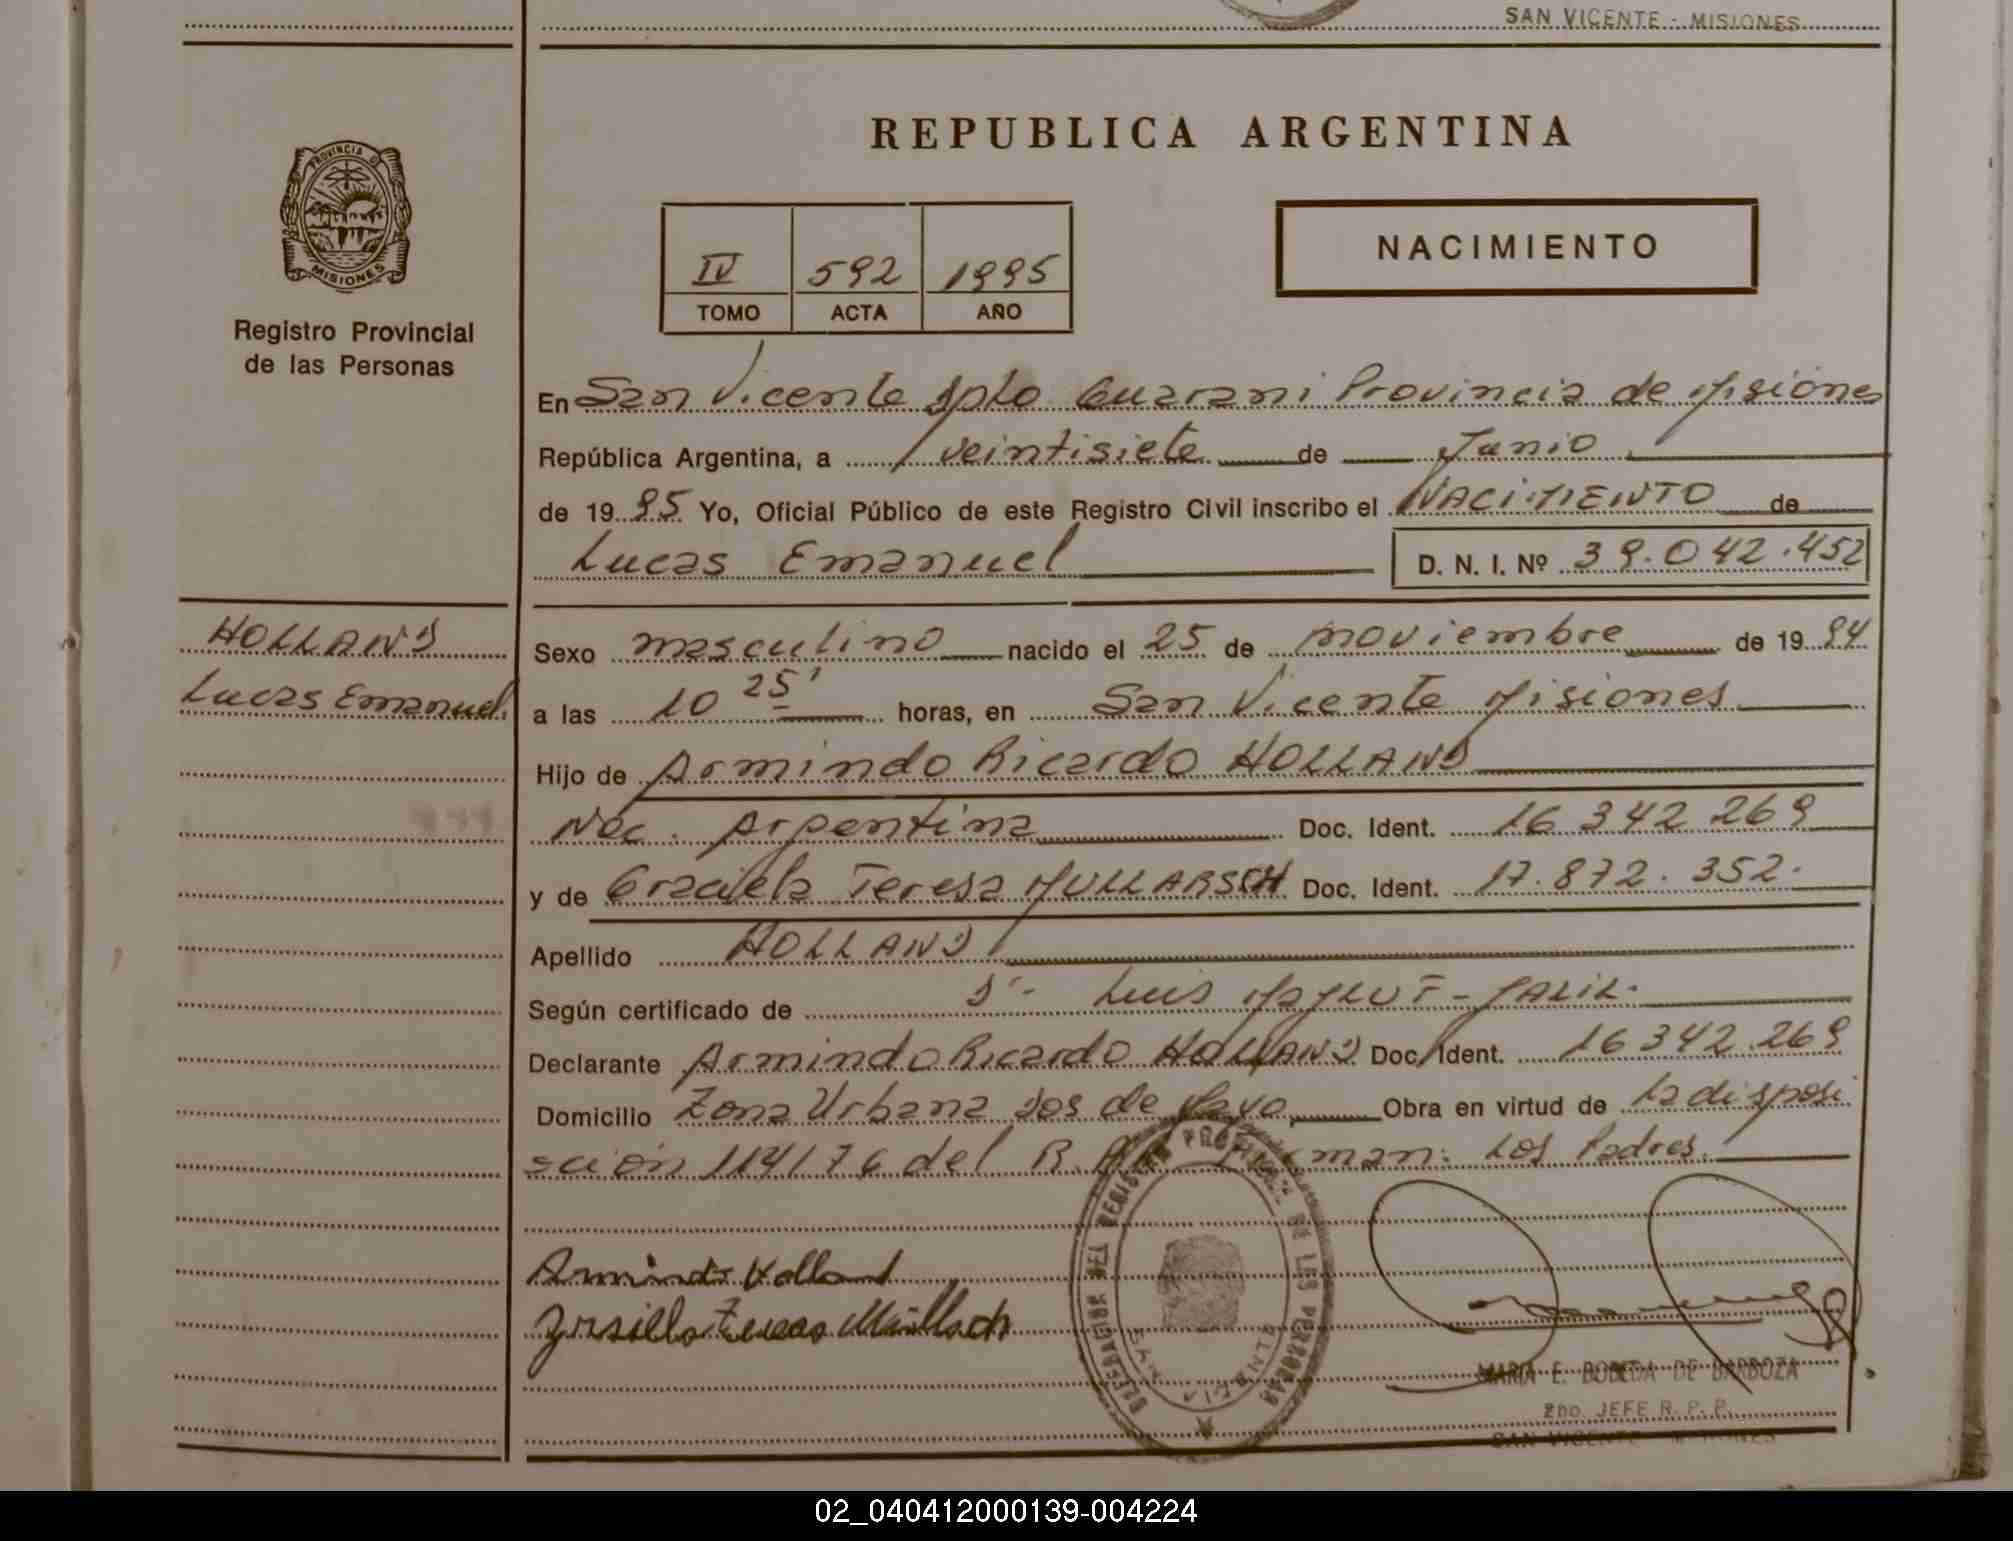 SAN VICENTE - MISIONES
REPUBLICA ARGENTINA
PROVINCIA D
MISIONES
Registro Provincial
de las Personas
NACIMIENTO
IV 592 1995
TOMO ACTA AÑO
En San Vicente Dpto Guarani Provincia de Misiones
República Argentina, a veintisiete de Junio
de 19 95 Yo, Oficial Público de este Registro Civil inscribo el NACIMIENTO de
Lucas Emanuel D. N. I. Nº 39.042.452
HOLLAND
Lucas Emanuel
Sexo masculino nacido el 25 de noviembre de 19 94
a las 10 25' horas, en San Vicente Misiones
Hijo de Armindo Ricardo HOLLAND
Nac. Argentina Doc. Ident. 16 342 269
y de Graciela Teresa MULLARSCH Doc. Ident. 17.872.352.
Apellido HOLLAND
Según certificado de Dr. Luis
Declarante Armindo Ricardo HOLLAND Doc. Ident. 16 342.269
Domicilio Zona Urbana Dos de Mayo Obra en virtud de la disposi
cion 114/76 del R. man: Los Padres.
Armindo Holland
MARIA E. BOBEDA DE BARBOZA
2DO. JEFE R. P. P.
SAN VICENTE - MISIONES
DELEGACION DEL REGISTRO PROVINCIAL DE LAS PERSONAS
02_040412000139-004224